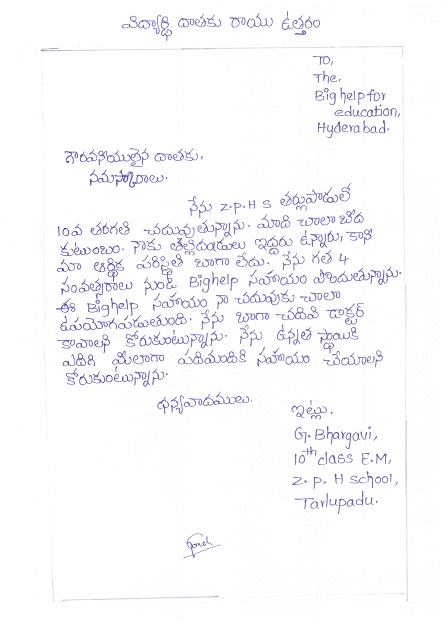 విద్యార్థి దాతకు రాయు ఉత్తరం
To,
The,
Big help for
education,
Hyderabad.
గౌరవనీయులైన దాతకు,
నమస్కారాలు.
నేను Z.P.H S తర్లుపాడులో
10వ తరగతి చదువుతున్నాను. మాది చాలా బీద
కుటుంబం. నాకు తల్లిదండ్రులు ఇద్దరు ఉన్నారు, కాని
మా ఆర్థిక పరిస్థితి బాగా లేదు. నేను గత 4
సంవత్సరాలు నుండి Bighelp సహాయం పొందుతున్నాను.
ఈ Bighelp సహాయం నా చదువుకు చాలా
ఉపయోగపడుతుంది. నేను బాగా చదివి డాక్టర్
కావాలని కోరుకుంటున్నాను. నేను ఉన్నత స్థాయికి
ఎదిగి మీలాగా పదిమందికి సహాయం చేయాలని
కోరుకుంటున్నాను.
ధన్యవాదములు.
ఇట్లు,
G. Bhargavi,
10th class E.M,
Z. P. H school,
Tarlupadu.